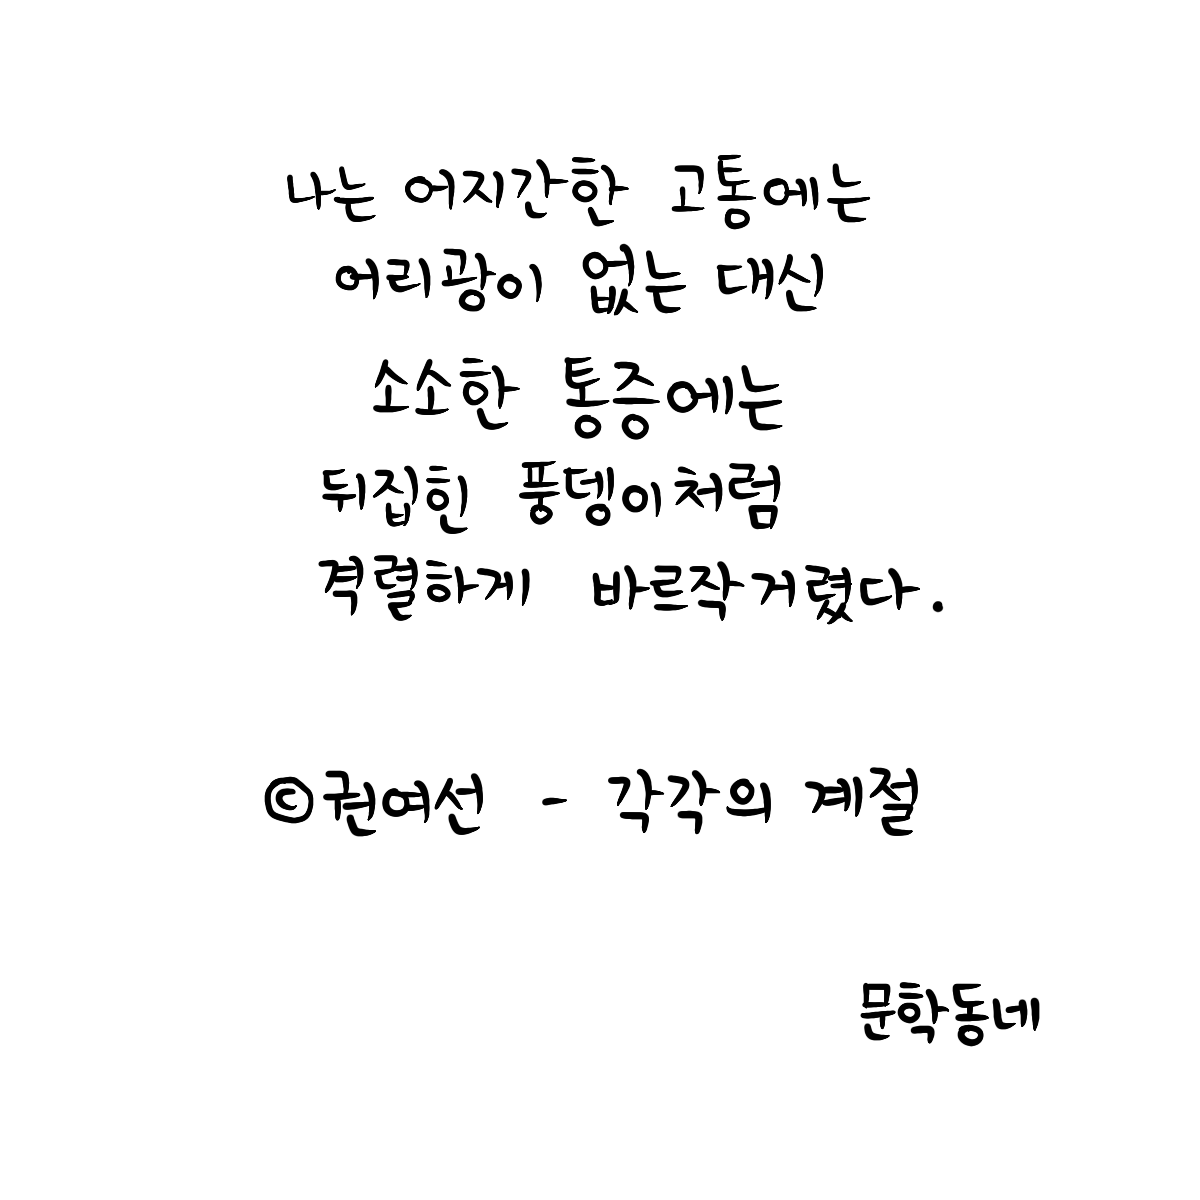 나는 어지간한 고통에는
어리광이 없는 대신
소소한 통증에는
뒤집힌 풍뎅이처럼
격렬하게 바르작거렸다.
©권여선 - 각각의 계절
문학동네